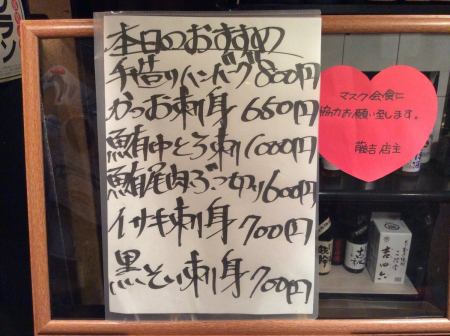 本日のおすすめ
手造りハンバーグ 800円
かつお刺身 650円
鮪中とろ刺 1000円
鮪尾肉ぶつ切り 600円
イサキ刺身 700円
黒そい刺身 700円
マスク会食に
協力お願い致します。
藤吉 店主
吉四六